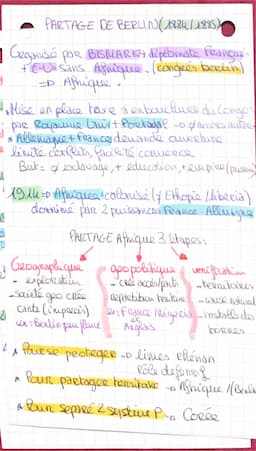 PARTAGE DE BERLIN (1884/1885)
Organisé par BISMARK + diplomate Français
+ E-U sans Afrique. (congrès Berlin)
⇒ Afrique.
Mise en place taxe à embouchure du Congo
par Royaume Uni + Portugal
Allemagne + France demande ouverture
limite conflits, facilité commerce
But: ∅ esclavage, + éducation, + empire
1914 ⇒ Afrique colonisé (≠ Ethopie / liberia)
dominé par 2 puissances France - Allemagne
PARTAGE Afrique 3 étapes:
Géographique
- exploration
- société géo crée
carte (imprécis)
ex: Berlin
géopolitique
- crée accès/ports
repartition
ex: France Nigeria
et Anglais
vérification
- territoires
bornes
Pour se proteger → limes rhénan
Pour partager territoire → Afrique // Berlin
Pour séparé 2 système P → Corée